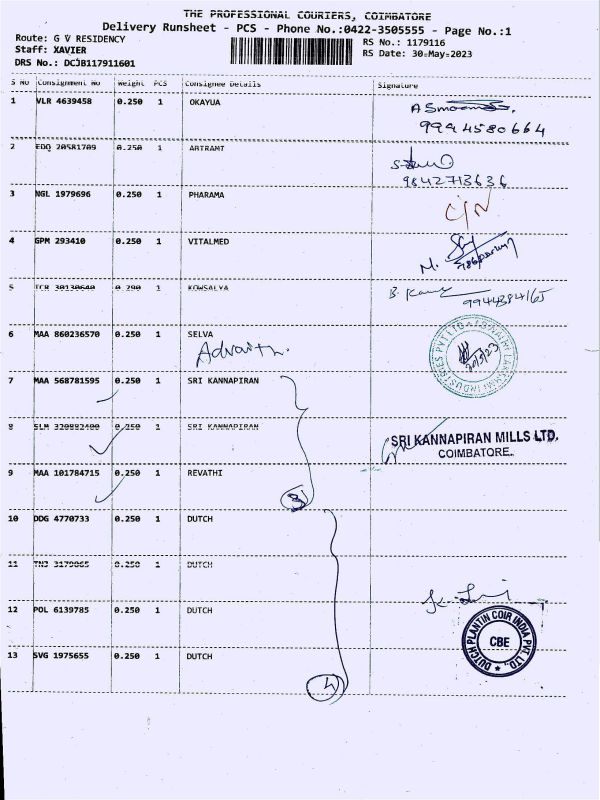 THE PROFESSIONAL COURIERS, COIMBATORE
Delivery Runsheet - PCS - Phone No.:0422-3505555 - Page No.:1
Route: G V RESIDENCY
Staff: XAVIER
DRS No.: DCJB117911601
RS No.: 1179116
RS Date: 30-May-2023
S No Consignment No Weight PCS Consignee Details Signature
1 VLR 4639458 0.250 1 OKAYUA
9994580664
2 EDQ 20581709 0.250 1 ARTRANT
9842713636
3 NGL 1979696 0.250 1 PHARAMA
C/N
4 GPM 293410 0.250 1 VITALMED
M.
5 TCR 30130640 0.200 1 KOWSALYA
B.
9944384165
6 MAA 860236570 1 SELVA
Advaith.
7 MAA 568781595 0.250 1 SRI KANNAPIRAN
8 SLM 320882400 0.250 1 SRI KANNAPIRAN
SRI KANNAPIRAN MILLS LTD.
COIMBATORE.
9 MAA 101784715 0.250 1 REVATHI
3
10 DDG 4770733 0.250 1 DUTCH
11 0.250 1 DUTCH
12 POL 6139785 0.250 1 DUTCH
DUTCH PLANTIN COIR INDIA PVT. LTD.
CBE
13 SVG 1975655 0.250 1 DUTCH
4